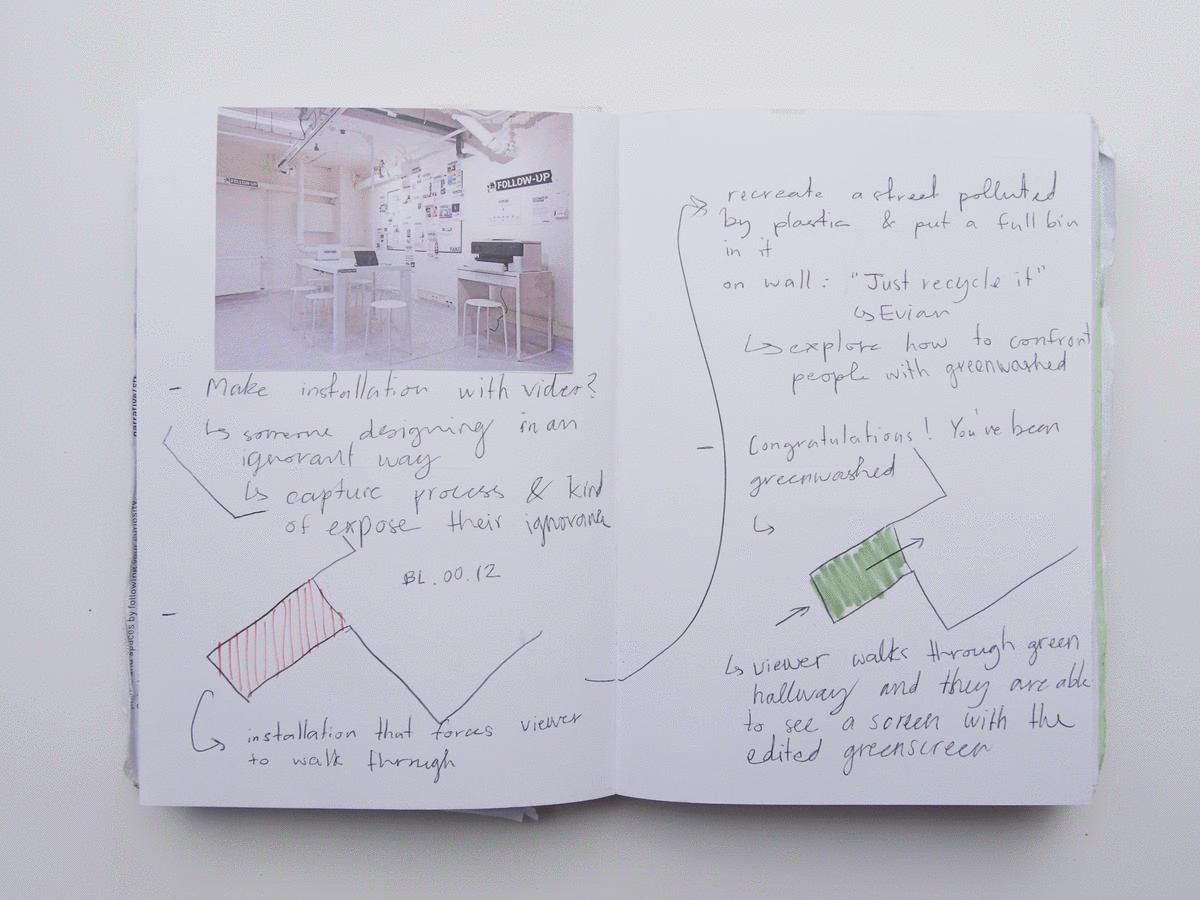 FOLLOW-UP
FOLLOW-UP
- Make installation with video?
↳ someone designing in an
ignorant way
↳ capture process & kind
of expose their ignorance
BL.00.12
-
installation that forces viewer
to walk through
recreate a street polluted
by plastic & put a full bin
in it
on wall: "Just recycle it"
↳ Evian
↳ explore how to confront
people with greenwashed
- Congratulations! You've been
greenwashed
↳
↳ viewer walks through green
hallway and they are able
to see a screen with the
edited greenscreen
spaces by following your curiosity